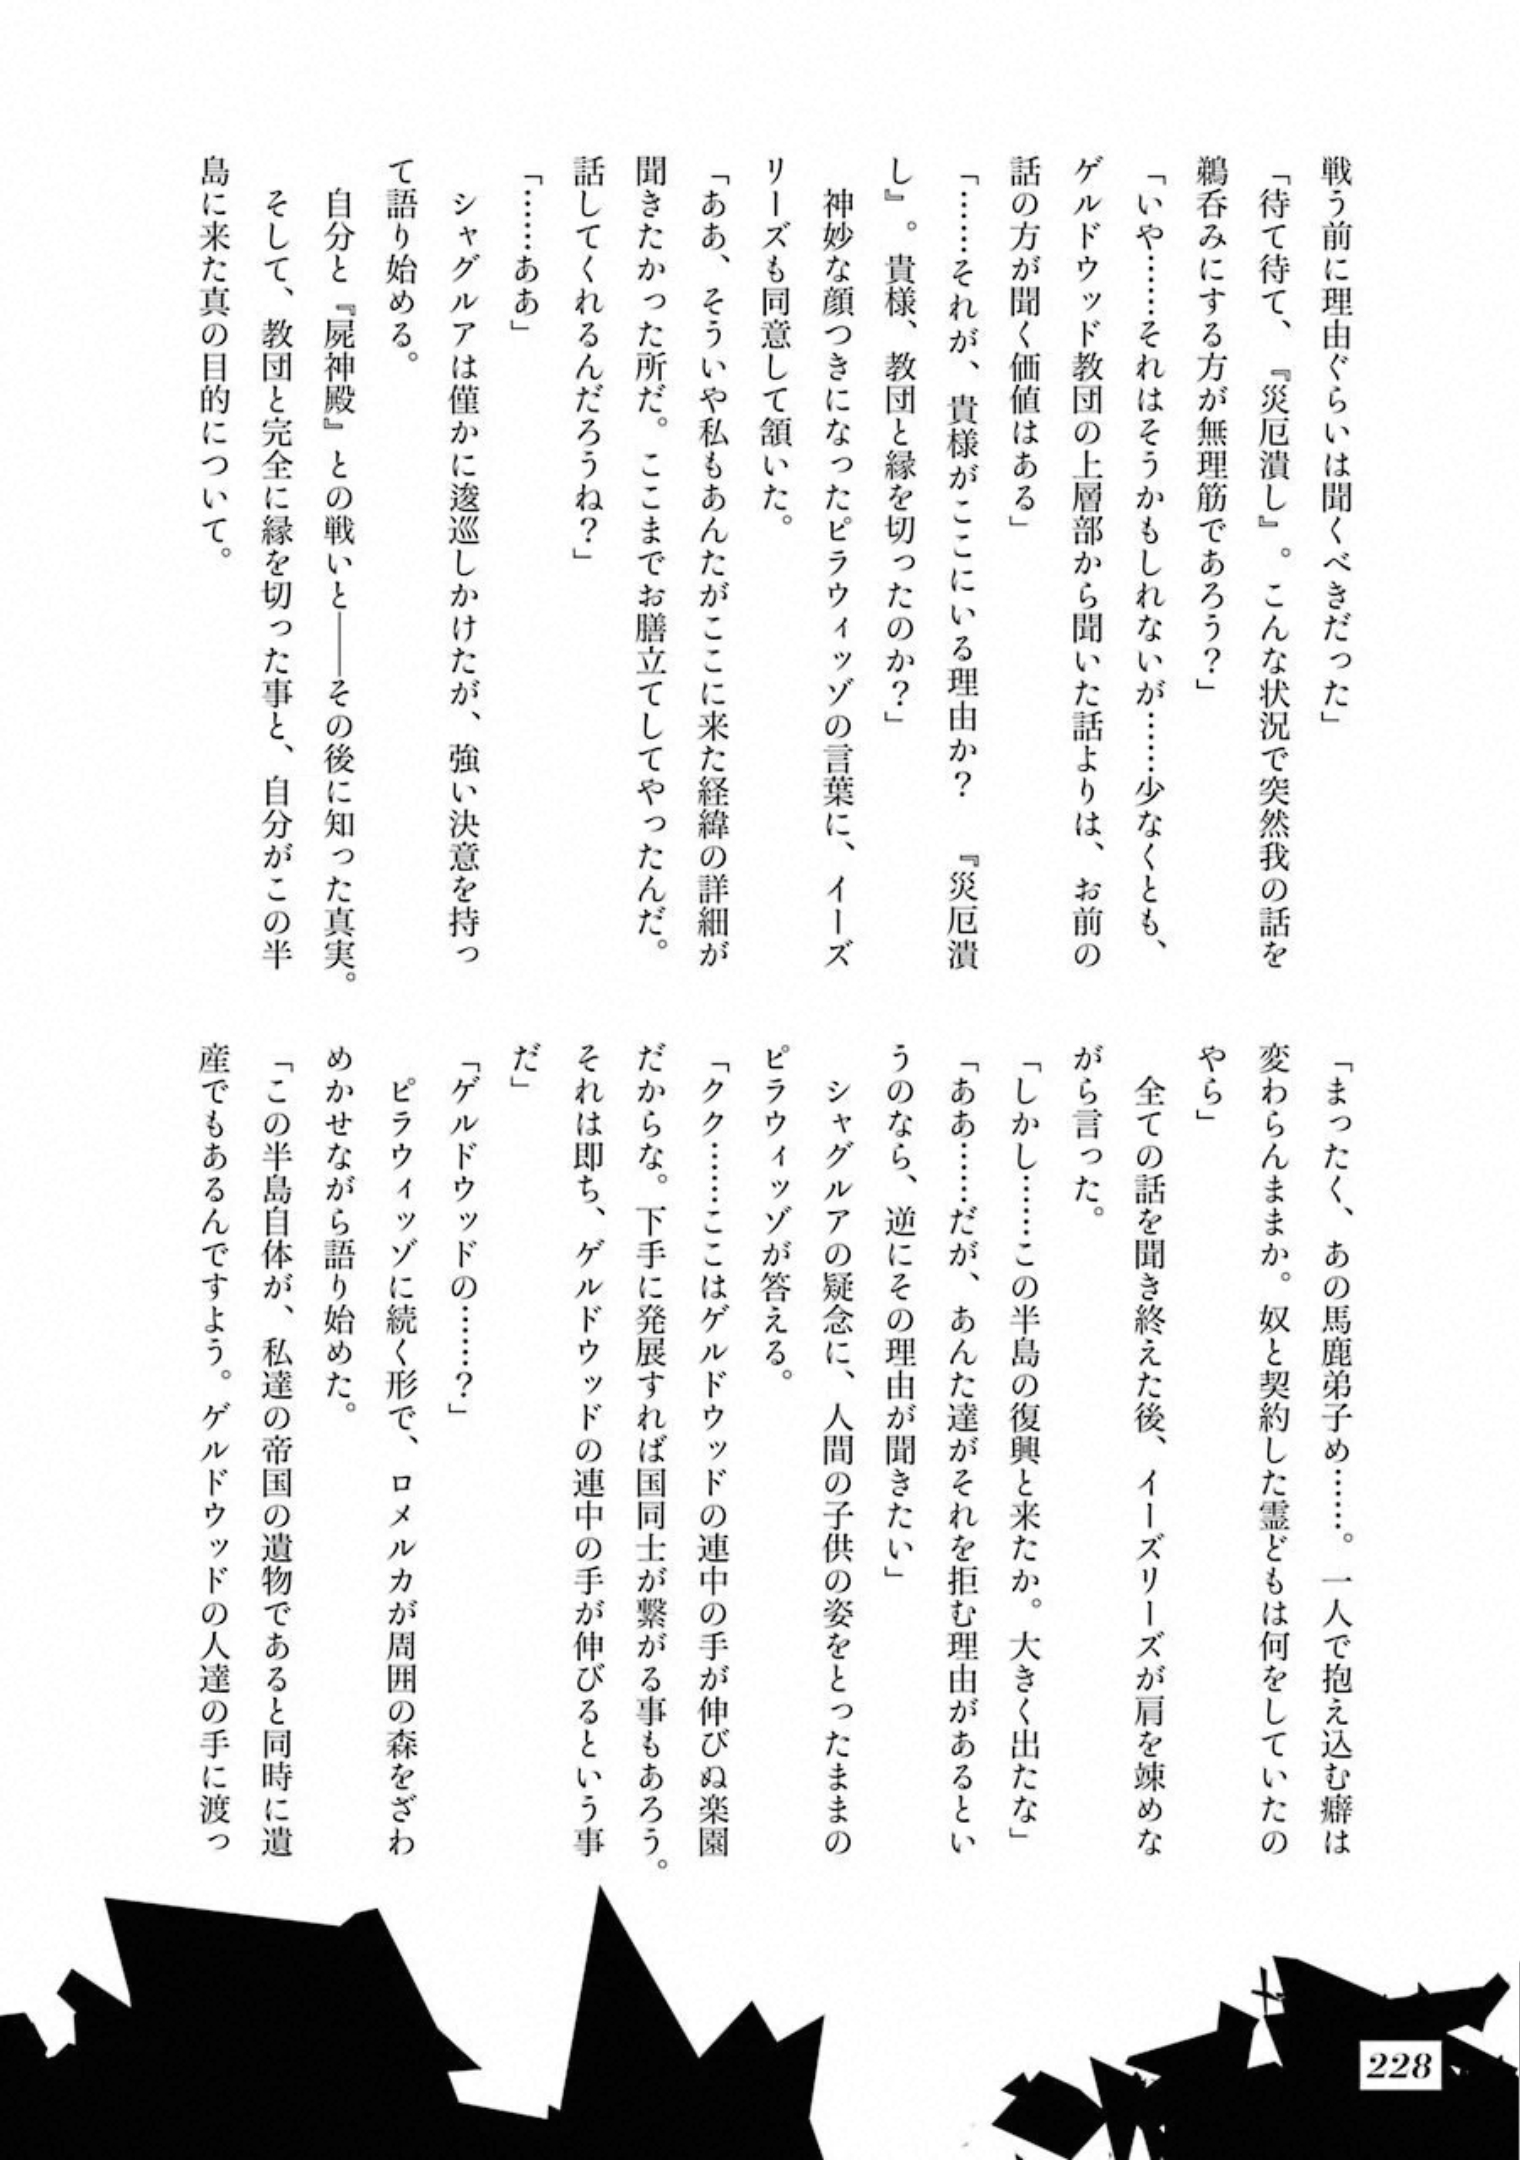 戦う前に理由ぐらいは聞くべきだった」
「待て待て、『災厄潰し』。こんな状況で突然我の話を
鵜呑みにする方が無理筋であろう？」
「いや……それはそうかもしれないが……少なくとも、
ゲルドウッド教団の上層部から聞いた話よりは、お前の
話の方が聞く価値はある」
「……それが、貴様がここにいる理由か？　『災厄潰
し』。貴様、教団と縁を切ったのか？」
神妙な顔つきになったピラウィッゾの言葉に、イーズ
リーズも同意して頷いた。
「ああ、そういや私もあんたがここに来た経緯の詳細が
聞きたかった所だ。ここまでお膳立てしてやったんだ。
話してくれるんだろうね？」
「……ああ」
シャグルアは僅かに逡巡しかけたが、強い決意を持っ
て語り始める。
自分と『屍神殿』との戦いと――その後に知った真実。
そして、教団と完全に縁を切った事と、自分がこの半
島に来た真の目的について。
「まったく、あの馬鹿弟子め……。一人で抱え込む癖は
変わらんままか。奴と契約した霊どもは何をしていたの
やら」
全ての話を聞き終えた後、イーズリーズが肩を竦めな
がら言った。
「しかし……この半島の復興と来たか。大きく出たな」
「ああ……だが、あんた達がそれを拒む理由があるとい
うのなら、逆にその理由が聞きたい」
シャグルアの疑念に、人間の子供の姿をとったままの
ピラウィッゾが答える。
「クク……ここはゲルドウッドの連中の手が伸びぬ楽園
だからな。下手に発展すれば国同士が繋がる事もあろう。
それは即ち、ゲルドウッドの連中の手が伸びるという事
だ」
「ゲルドウッドの……？」
ピラウィッゾに続く形で、ロメルカが周囲の森をざわ
めかせながら語り始めた。
「この半島自体が、私達の帝国の遺物であると同時に遺
産でもあるんですよう。ゲルドウッドの人達の手に渡っ
228